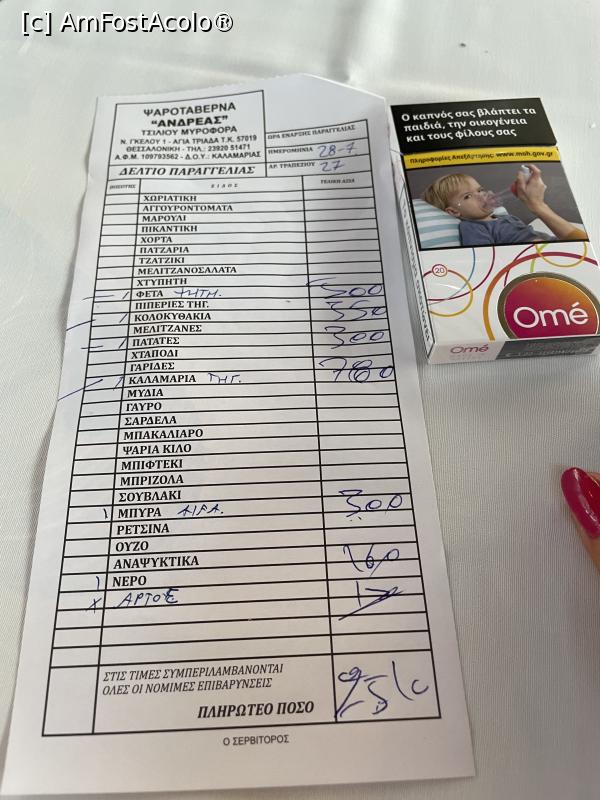 [c] AmFostAcolo®
ΨΑΡΟΤΑΒΕΡΝΑ
"ΑΝΔΡΕΑΣ"
ΤΣΙΛΙΟΥ ΜΥΡΟΦΟΡΑ
Ν. ΓΚΕΛΟΥ 1 - ΑΓΙΑ ΤΡΙΑΔΑ Τ.Κ. 57019
ΘΕΣΣΑΛΟΝΙΚΗ - ΤΗΛ.: 23920 51471
Α.Φ.Μ. 109793562 - Δ.Ο.Υ.: ΚΑΛΑΜΑΡΙΑΣ
ΔΕΛΤΙΟ ΠΑΡΑΓΓΕΛΙΑΣ
ΩΡΑ ΕΝΑΡΞΗΣ ΠΑΡΑΓΓΕΛΙΑΣ
ΗΜΕΡΟΜΗΝΙΑ 28-7
ΑΡ. ΤΡΑΠΕΖΙΟΥ 27
ΠΟΣΟΤΗΣ ΕΙΔΟΣ ΤΕΛΙΚΗ ΑΞΙΑ
ΧΩΡΙΑΤΙΚΗ
ΑΓΓΟΥΡΟΝΤΟΜΑΤΑ
ΜΑΡΟΥΛΙ
ΠΙΚΑΝΤΙΚΗ
ΧΟΡΤΑ
ΠΑΤΖΑΡΙΑ
ΤΖΑΤΖΙΚΙ
ΜΕΛΙΤΖΑΝΟΣΑΛΑΤΑ
ΧΤΥΠΗΤΗ
ΦΕΤΑ ΨΗΤΗ. 500
ΠΙΠΕΡΙΕΣ ΤΗΓ.
ΚΟΛΟΚΥΘΑΚΙΑ 550
ΜΕΛΙΤΖΑΝΕΣ
ΠΑΤΑΤΕΣ 300
ΧΤΑΠΟΔΙ
ΓΑΡΙΔΕΣ
ΚΑΛΑΜΑΡΙΑ ΤΗΓ. 780
ΜΥΔΙΑ
ΓΑΥΡΟ
ΣΑΡΔΕΛΑ
ΜΠΑΚΑΛΙΑΡΟ
ΨΑΡΙΑ ΚΙΛΟ
ΜΠΙΦΤΕΚΙ
ΜΠΡΙΖΟΛΑ
ΣΟΥΒΛΑΚΙ
ΜΠΥΡΑ 300
ΡΕΤΣΙΝΑ
ΟΥΖΟ
ΑΝΑΨΥΚΤΙΚΑ 160
ΝΕΡΟ
ΑΡΤΟΣ
ΣΤΙΣ ΤΙΜΕΣ ΣΥΜΠΕΡΙΛΑΜΒΑΝΟΝΤΑΙ
ΟΛΕΣ ΟΙ ΝΟΜΙΜΕΣ ΕΠΙΒΑΡΥΝΣΕΙΣ
ΠΛΗΡΩΤΕΟ ΠΟΣΟ
Ο ΣΕΡΒΙΤΟΡΟΣ
Ο καπνός σας βλάπτει τα
παιδιά, την οικογένεια
και τους φίλους σας
Πληροφορίες Απεξάρτησης: www.moh.gov.gr
20
Omé
Omé